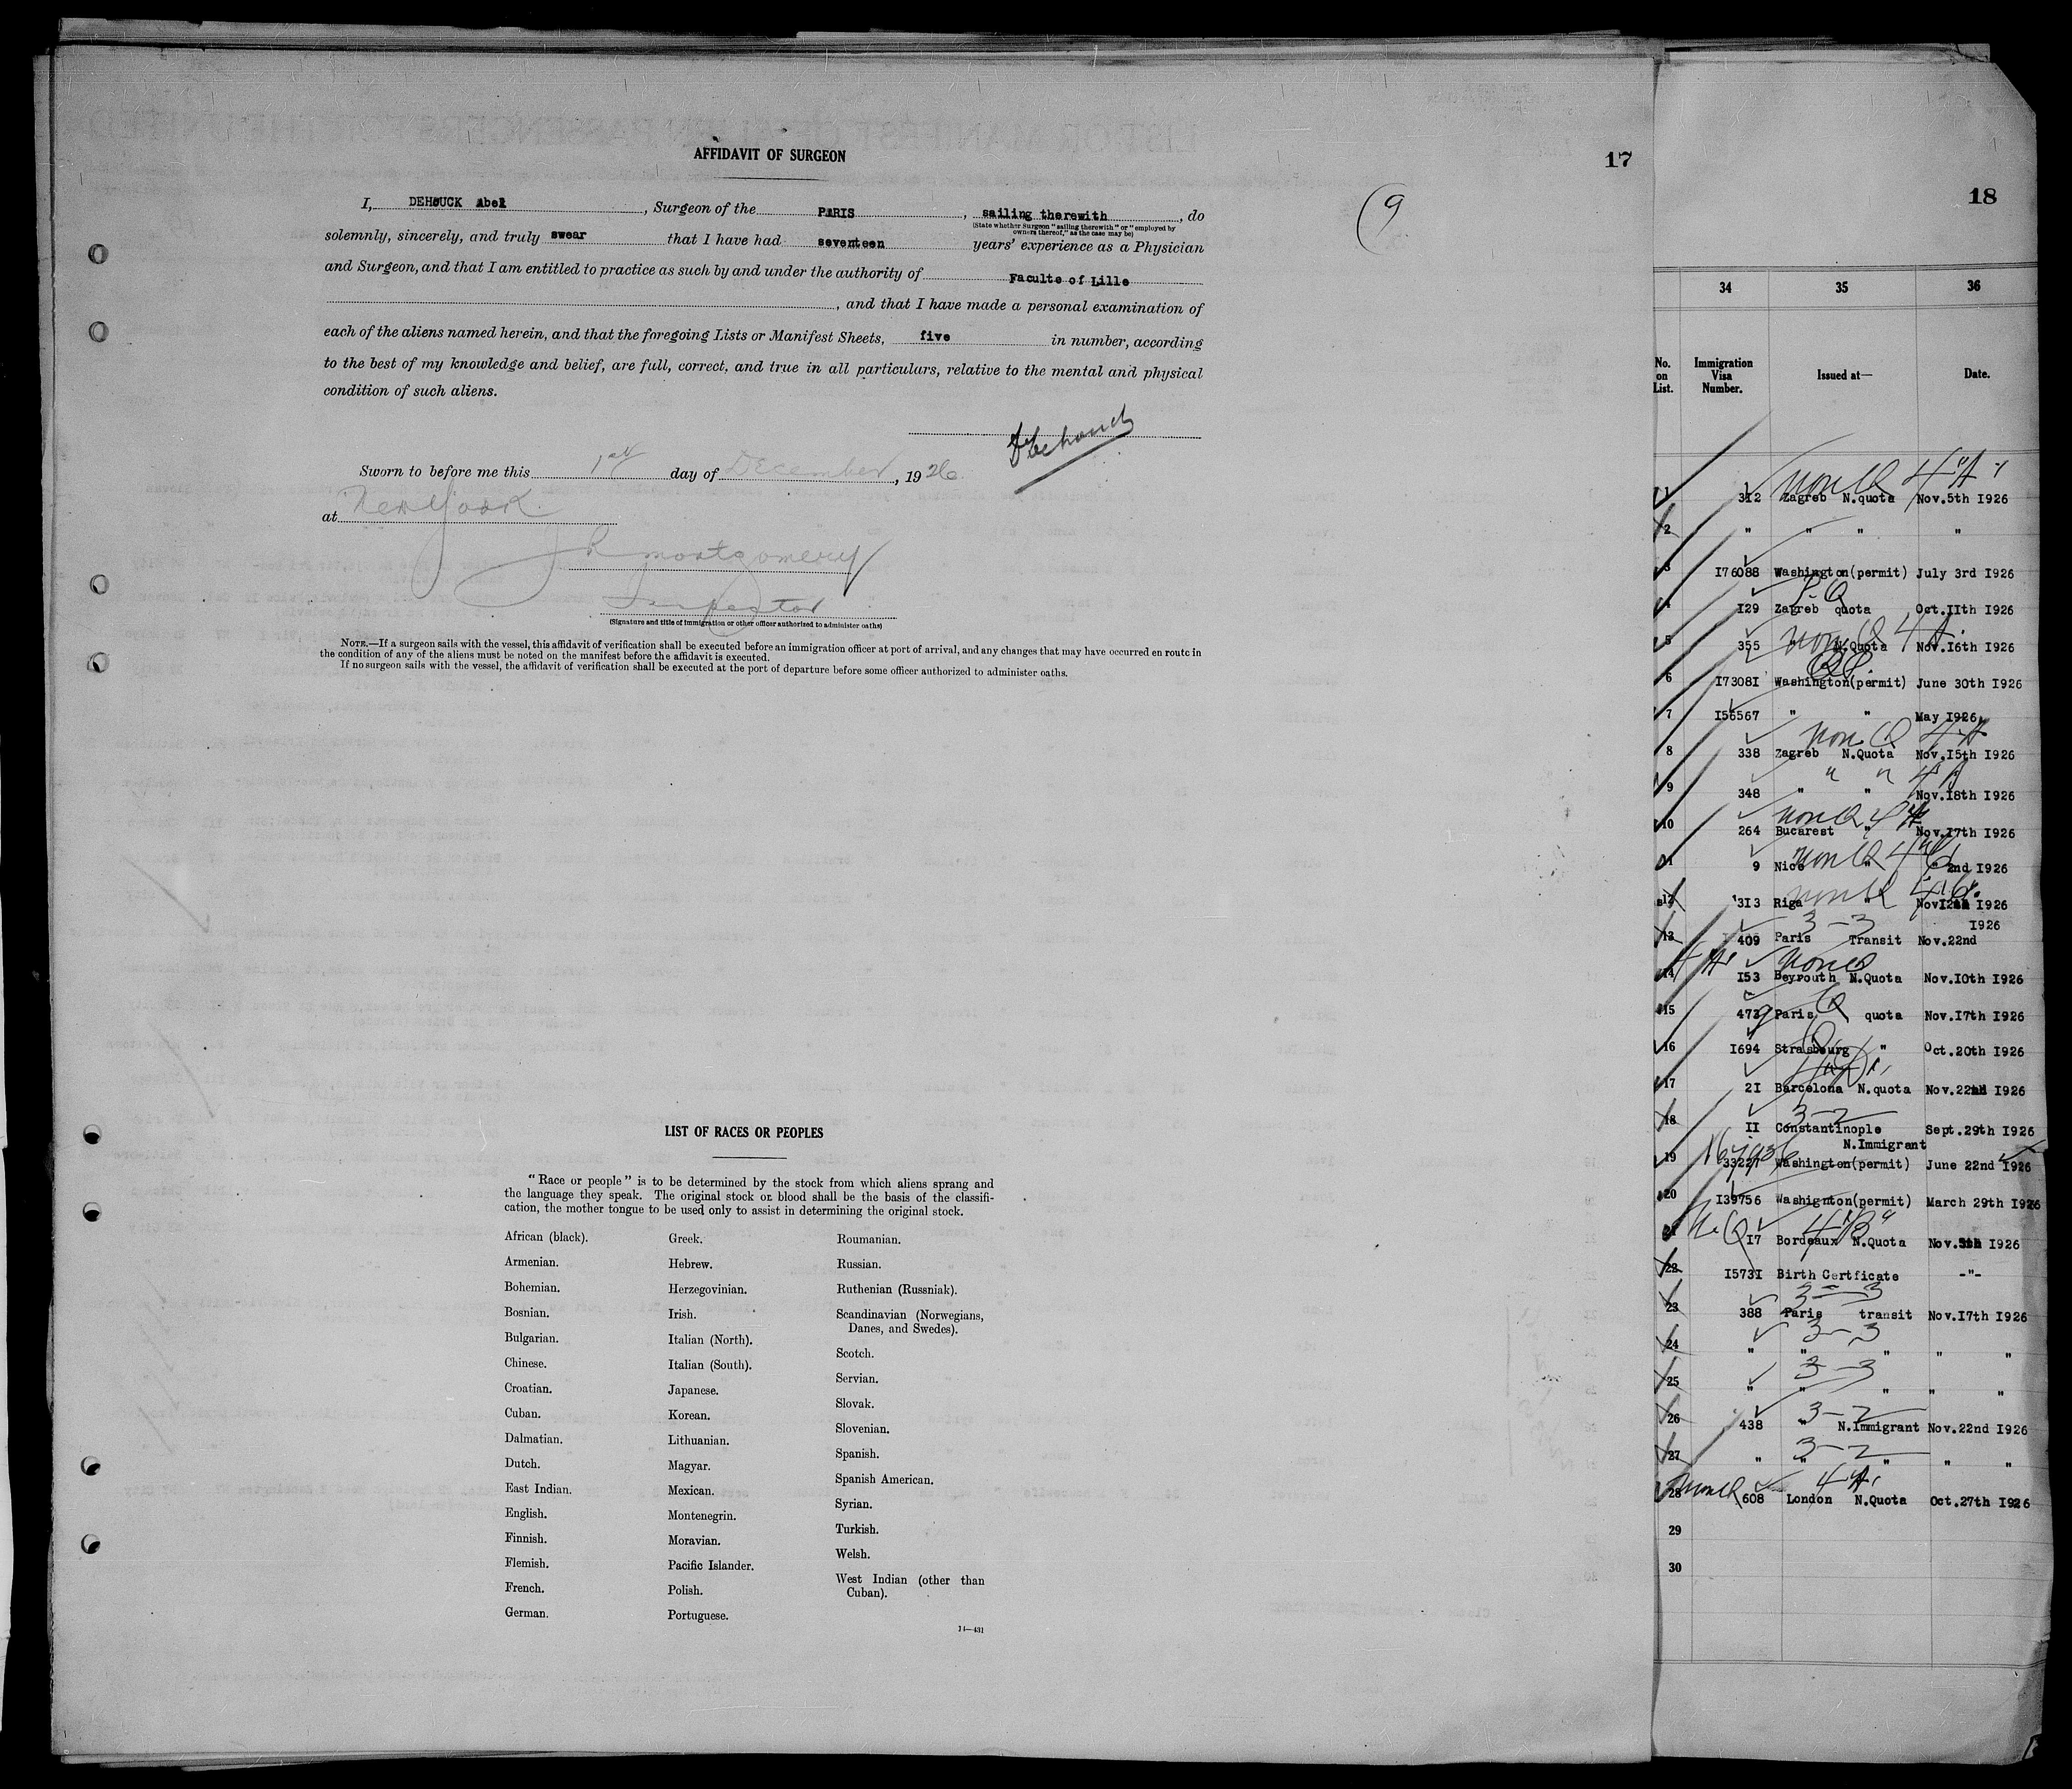 AFFIDAVIT OF SURGEON
17
9
I, DEHOUCK Abel, Surgeon of the PARIS, sailing therewith, do
(State whether Surgeon "sailing therewith" or "employed by
owners thereof," as the case may be)
solemnly, sincerely, and truly swear that I have had seventeen years' experience as a Physician
and Surgeon, and that I am entitled to practice as such by and under the authority of Faculte of Lille
, and that I have made a personal examination of
each of the aliens named herein, and that the foregoing Lists or Manifest Sheets, five in number, according
to the best of my knowledge and belief, are full, correct, and true in all particulars, relative to the mental and physical
condition of such aliens.
Sworn to before me this 1st day of December, 1926
at New York
Montgomery
Inspector
(Signature and title of immigration or other officer authorized to administer oaths)
NOTE.—If a surgeon sails with the vessel, this affidavit of verification shall be executed before an immigration officer at port of arrival, and any changes that may have occurred en route in
the condition of any of the aliens must be noted on the manifest before the affidavit is executed.
If no surgeon sails with the vessel, the affidavit of verification shall be executed at the port of departure before some officer authorized to administer oaths.
LIST OF RACES OR PEOPLES
"Race or people" is to be determined by the stock from which aliens sprang and
the language they speak. The original stock or blood shall be the basis of the classifi-
cation, the mother tongue to be used only to assist in determining the original stock.
African (black).
Armenian.
Bohemian.
Bosnian.
Bulgarian.
Chinese.
Croatian.
Cuban.
Dalmatian.
Dutch.
East Indian.
English.
Finnish.
Flemish.
French.
German.
Greek.
Hebrew.
Herzegovinian.
Irish.
Italian (North).
Italian (South).
Japanese.
Korean.
Lithuanian.
Magyar.
Mexican.
Montenegrin.
Moravian.
Pacific Islander.
Polish.
Portuguese.
Roumanian.
Russian.
Ruthenian (Russniak).
Scandinavian (Norwegians,
Danes, and Swedes).
Scotch.
Servian.
Slovak.
Slovenian.
Spanish.
Spanish American.
Syrian.
Turkish.
Welsh.
West Indian (other than
Cuban).
14—431
18
34 35 36
No. on List. Immigration Visa Number. Issued at— Date.
1 312 Zagreb N.quota Nov.5th I926
2 " " " "
3 I76088 Washington(permit) July 3rd I926
4 I29 Zagreb quota Oct.IIth I926
5 355 " N.Quota Nov.I6th I926
6 I7308I Washington(permit) June 30th I926
7 I56567 " " May I926
8 338 Zagreb N.Quota Nov.I5th I926
9 348 " " Nov.I8th I926
10 264 Bucarest " Nov.I7th I926
11 9 Nice " " 2nd I926
12 3I3 Riga " Nov I2th I926
13 409 Paris Transit Nov.22nd I926
14 I53 Beyrouth N.Quota Nov.I0th I926
15 473 Paris quota Nov.I7th I926
16 I694 Strasbourg " Oct.20th I926
17 2I Barcelona N.quota Nov.22nd I926
18 II Constantinople Sept.29th I926
N.Immigrant
19 33227 Washington(permit) June 22nd I926
20 I39756 Washignton(permit) March 29th I926
21 I7 Bordeaux N.Quota Nov.5th I926
22 I573I Birth Certficate -"-
23 388 Paris transit Nov.I7th I926
24 " " " " "
25 " " " " "
26 438 " N.Immigrant Nov.22nd I926
27 " " " " "
28 608 London N.Quota Oct.27th I926
29
30